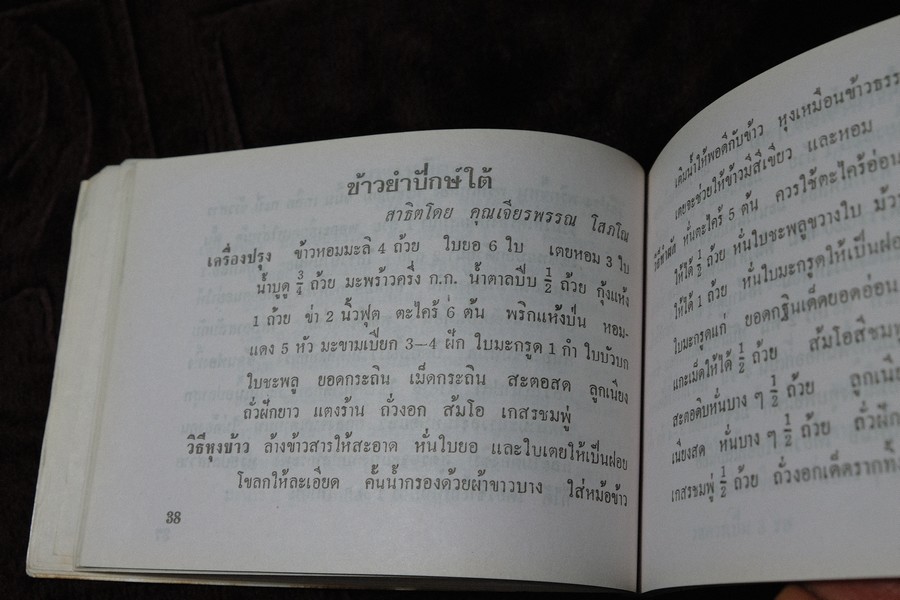 ข้าวยำปักษ์ใต้
สาธิตโดย คุณเจียรพรรณ โสภโณ
เครื่องปรุง ข้าวหอมมะลิ 4 ถ้วย ใบยอ 6 ใบ เตยหอม 3 ใบ
น้ำบูดู 3/4 ถ้วย มะพร้าวครึ่ง ก.ก. น้ำตาลปีบ 1/2 ถ้วย กุ้งแห้ง
1 ถ้วย ข่า 2 นิ้วฟุต ตะไคร้ 6 ต้น พริกแห้งป่น หอม-
แดง 5 หัว มะขามเปียก 3–4 ฝัก ใบมะกรูด 1 กำ ใบบัวบก
ใบชะพลู ยอดกระถิน เม็ดกระถิน สะตอสด ลูกเนียง
ถั่วฝักยาว แตงร้าน ถั่วงอก ส้มโอ เกสรชมพู่
วิธีหุงข้าว ล้างข้าวสารให้สะอาด หั่นใบยอ และใบเตยให้เป็นฝอย
โขลกให้ละเอียด คั้นน้ำกรองด้วยผ้าขาวบาง ใส่หม้อข้าว
38
เติมน้ำให้พอดีกับข้าว หุงเหมือนข้าวธรร
เตยจะช่วยให้ข้าวมีสีเขียว และหอม
วิธีทำผัก หั่นตะไคร้ 5 ต้น ควรใช้ตะไคร้อ่อน
ให้ได้ 1/2 ถ้วย หั่นใบชะพลูขวางใบ ม้ว
ให้ได้ 1 ถ้วย หั่นใบมะกรูดให้เป็นฝอย
ใบมะกรูดแก่ ยอดกฐินเด็ดยอดอ่อน
แกะเม็ดให้ได้ 1/2 ถ้วย ส้มโอสีชมพู
สะตอดิบหั่นบาง ๆ 1/2 ถ้วย ลูกเนีย
เนียงสด หั่นบาง ๆ 1/2 ถ้วย ถั่วฝัก
เกสรชมพู่ 1/2 ถ้วย ถั่วงอกเด็ดรากทิ้ง